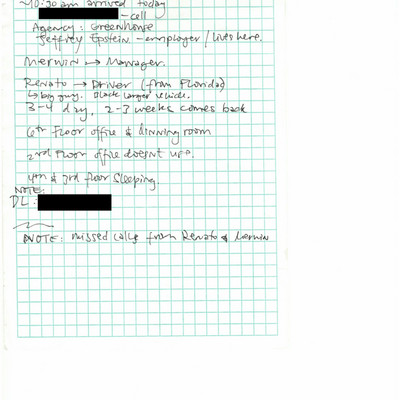 ~10:30 am arrived today
-cell
Agency: Greenhouse
Jeffrey Epstein - employer / lives here.
Merwin → Manager.
Renato → Driver (from Florida)
↳ big guy. black larger vehicle.
3-4 day, 2-3 weeks comes back
6th Floor office & dinning room
2nd Floor office doesnt use.
4th & 3rd floor sleeping.
NOTE:
DL:
NOTE: missed calls from Renato & Merwin